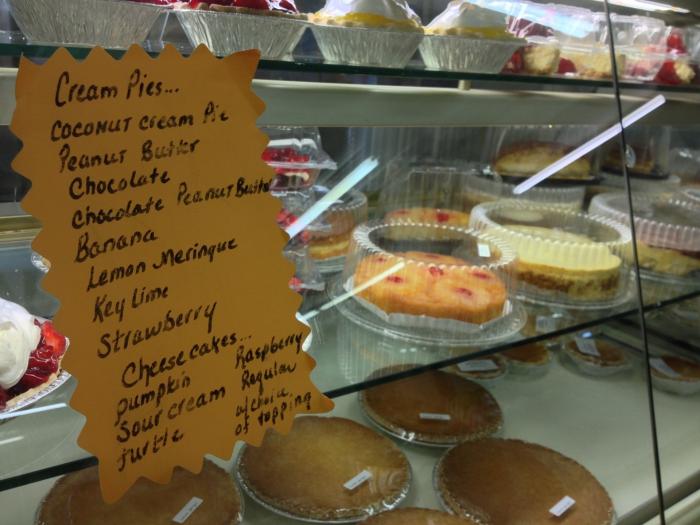 Cream Pies...
Coconut cream Pie
Peanut Butter
Chocolate
Chocolate Peanut Butter
Banana
Lemon Meringue
Key Lime
Strawberry
Cheesecakes...
pumpkin
Sour cream
turtle
Raspberry
Regular
w/choice
of topping